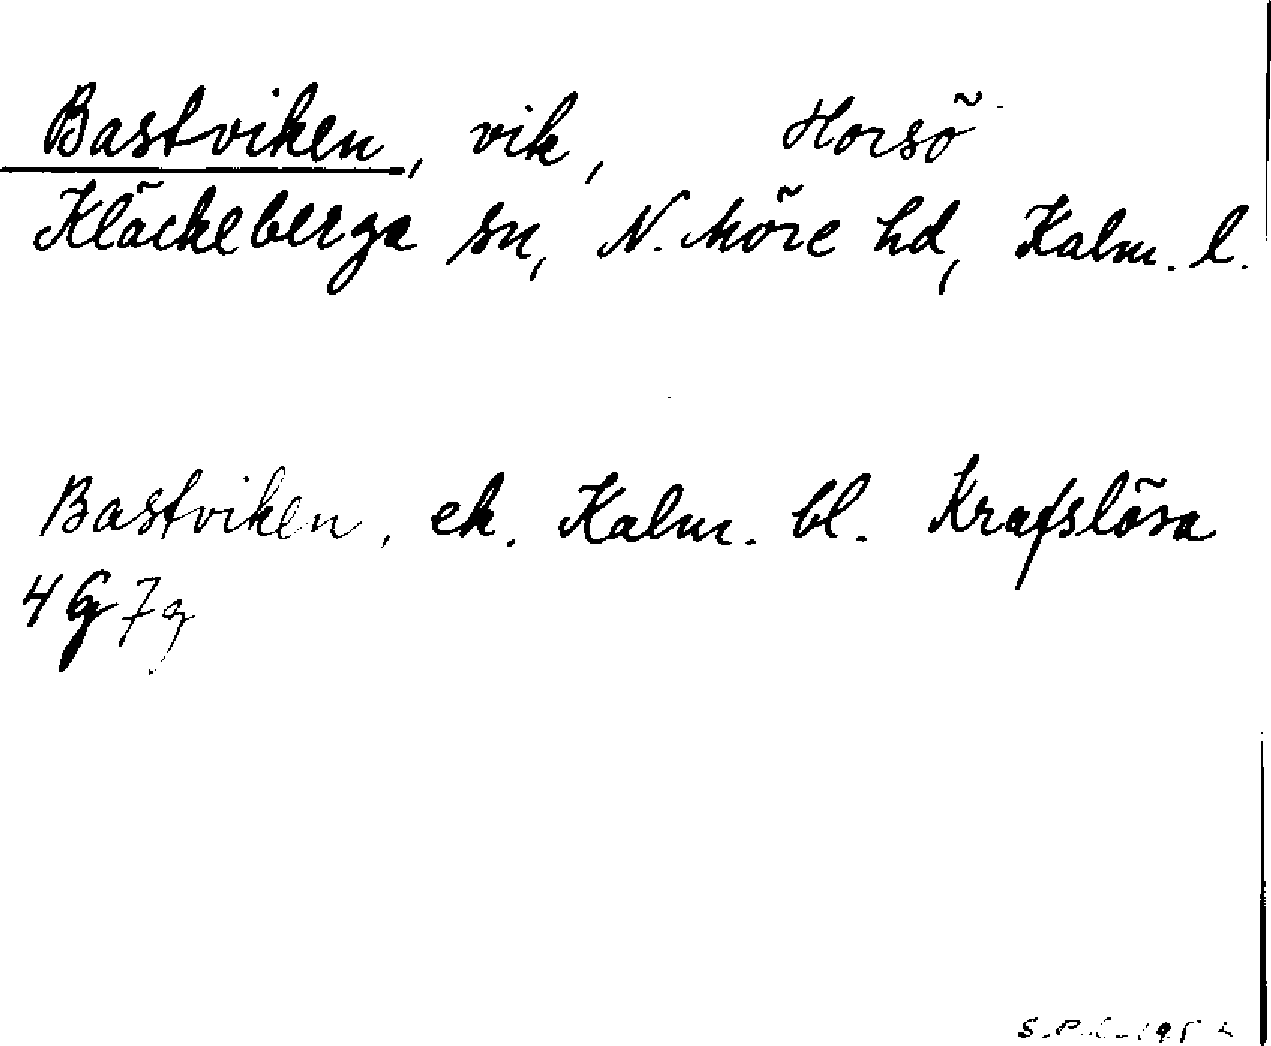 Bastviken, vik, Horsö
Kläckeberga sn, N. Möre hd, Kalm. l.
Bastviken, ek. Kalm. bl. Krafslösa
4 G 7g